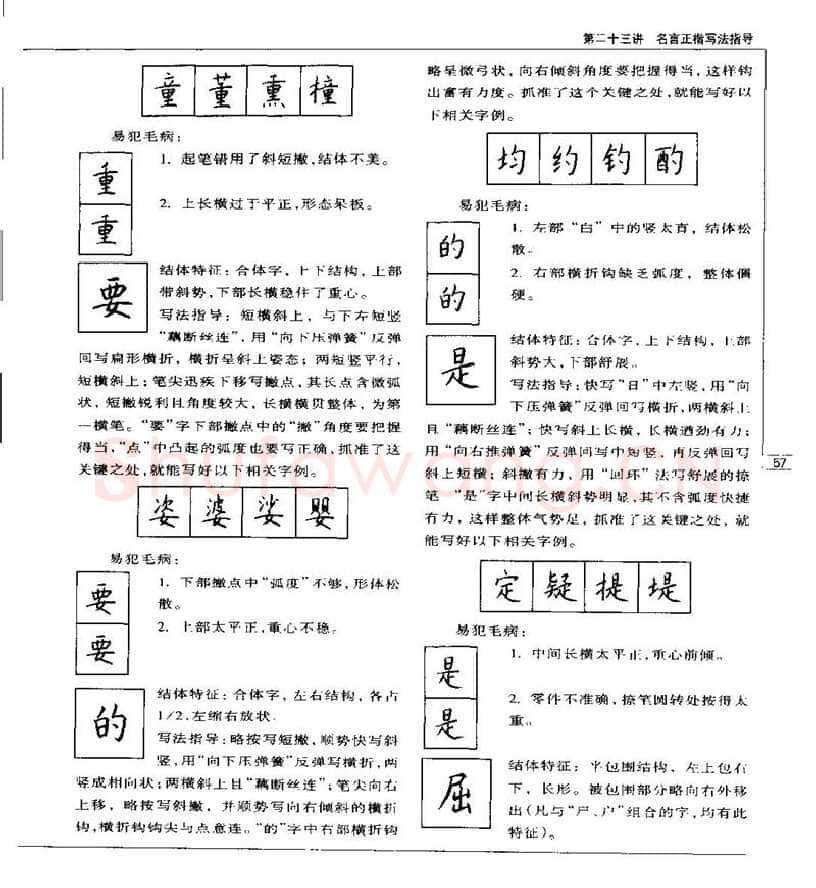 第二十三讲 名言正楷写法指导
童 董 熏 撞
易犯毛病:
重
1. 起笔错用了斜短撇,结体不美。
重
2. 上长横过于平正,形态呆板。
要
结体特征:合体字,上下结构,上部
带斜势,下部长横稳住了重心。
写法指导:短横斜上,与下左短竖
“藕断丝连”,用“向下压弹簧”反弹
回写扁形横折,横折呈斜上姿态;两短竖平行,
短横斜上;笔尖迅疾下移写撇点,其长点含微弧
状,短撇锐利且角度较大,长横横贯整体,为第
一横笔。“要”字下部撇点中的“撇”角度要把握
得当,“点”中凸起的弧度也要写正确,抓准了这
关键之处,就能写好以下相关字例。
姿 婆 娑 婴
易犯毛病:
要
1. 下部撇点中“弧度”不够,形体松
散。
要
2. 上部太平正,重心不稳。
的
结体特征:合体字,左右结构,各占
1/2,左缩右放状。
写法指导:略按写短撇,顺势快写斜
竖,用“向下压弹簧”反弹写横折,两
竖成相向状;两横斜上且“藕断丝连”;笔尖向右
上移,略按写斜撇,并顺势写向右倾斜的横折
钩,横折钩钩尖与点意连。“的”字中右部横折钩
略呈微弓状,向右倾斜角度要把握得当,这样钩
出富有力度。抓准了这个关键之处,就能写好以
下相关字例。
均 约 钓 酌
易犯毛病:
的
1. 左部“白”中的竖太直,结体松
散。
的
2. 右部横折钩缺乏弧度,整体僵
硬。
是
结体特征:合体字,上下结构,上部
斜势大,下部舒展。
写法指导:快写“日”中左竖,用“向
下压弹簧”反弹回写横折,两横斜上
且“藕断丝连”;快写斜上长横,长横遒劲有力;
用“向右推弹簧”反弹回写中短竖,再反弹回写
斜上短横;斜撇有力,用“回环”法写舒展的捺
笔。“是”字中间长横斜势明显,其不含弧度快捷
有力,这样整体气势足,抓准了这关键之处,就
能写好以下相关字例。
定 疑 提 堤
易犯毛病:
是
1. 中间长横太平正,重心前倾。
是
2. 零件不准确、捺笔圆转处按得太
重。
屈
结体特征:半包围结构、左上包右
下,长形。被包围部分略向右外移
出(凡与“尸、户”组合的字,均有此
特征)。
57
Shufawang.cn